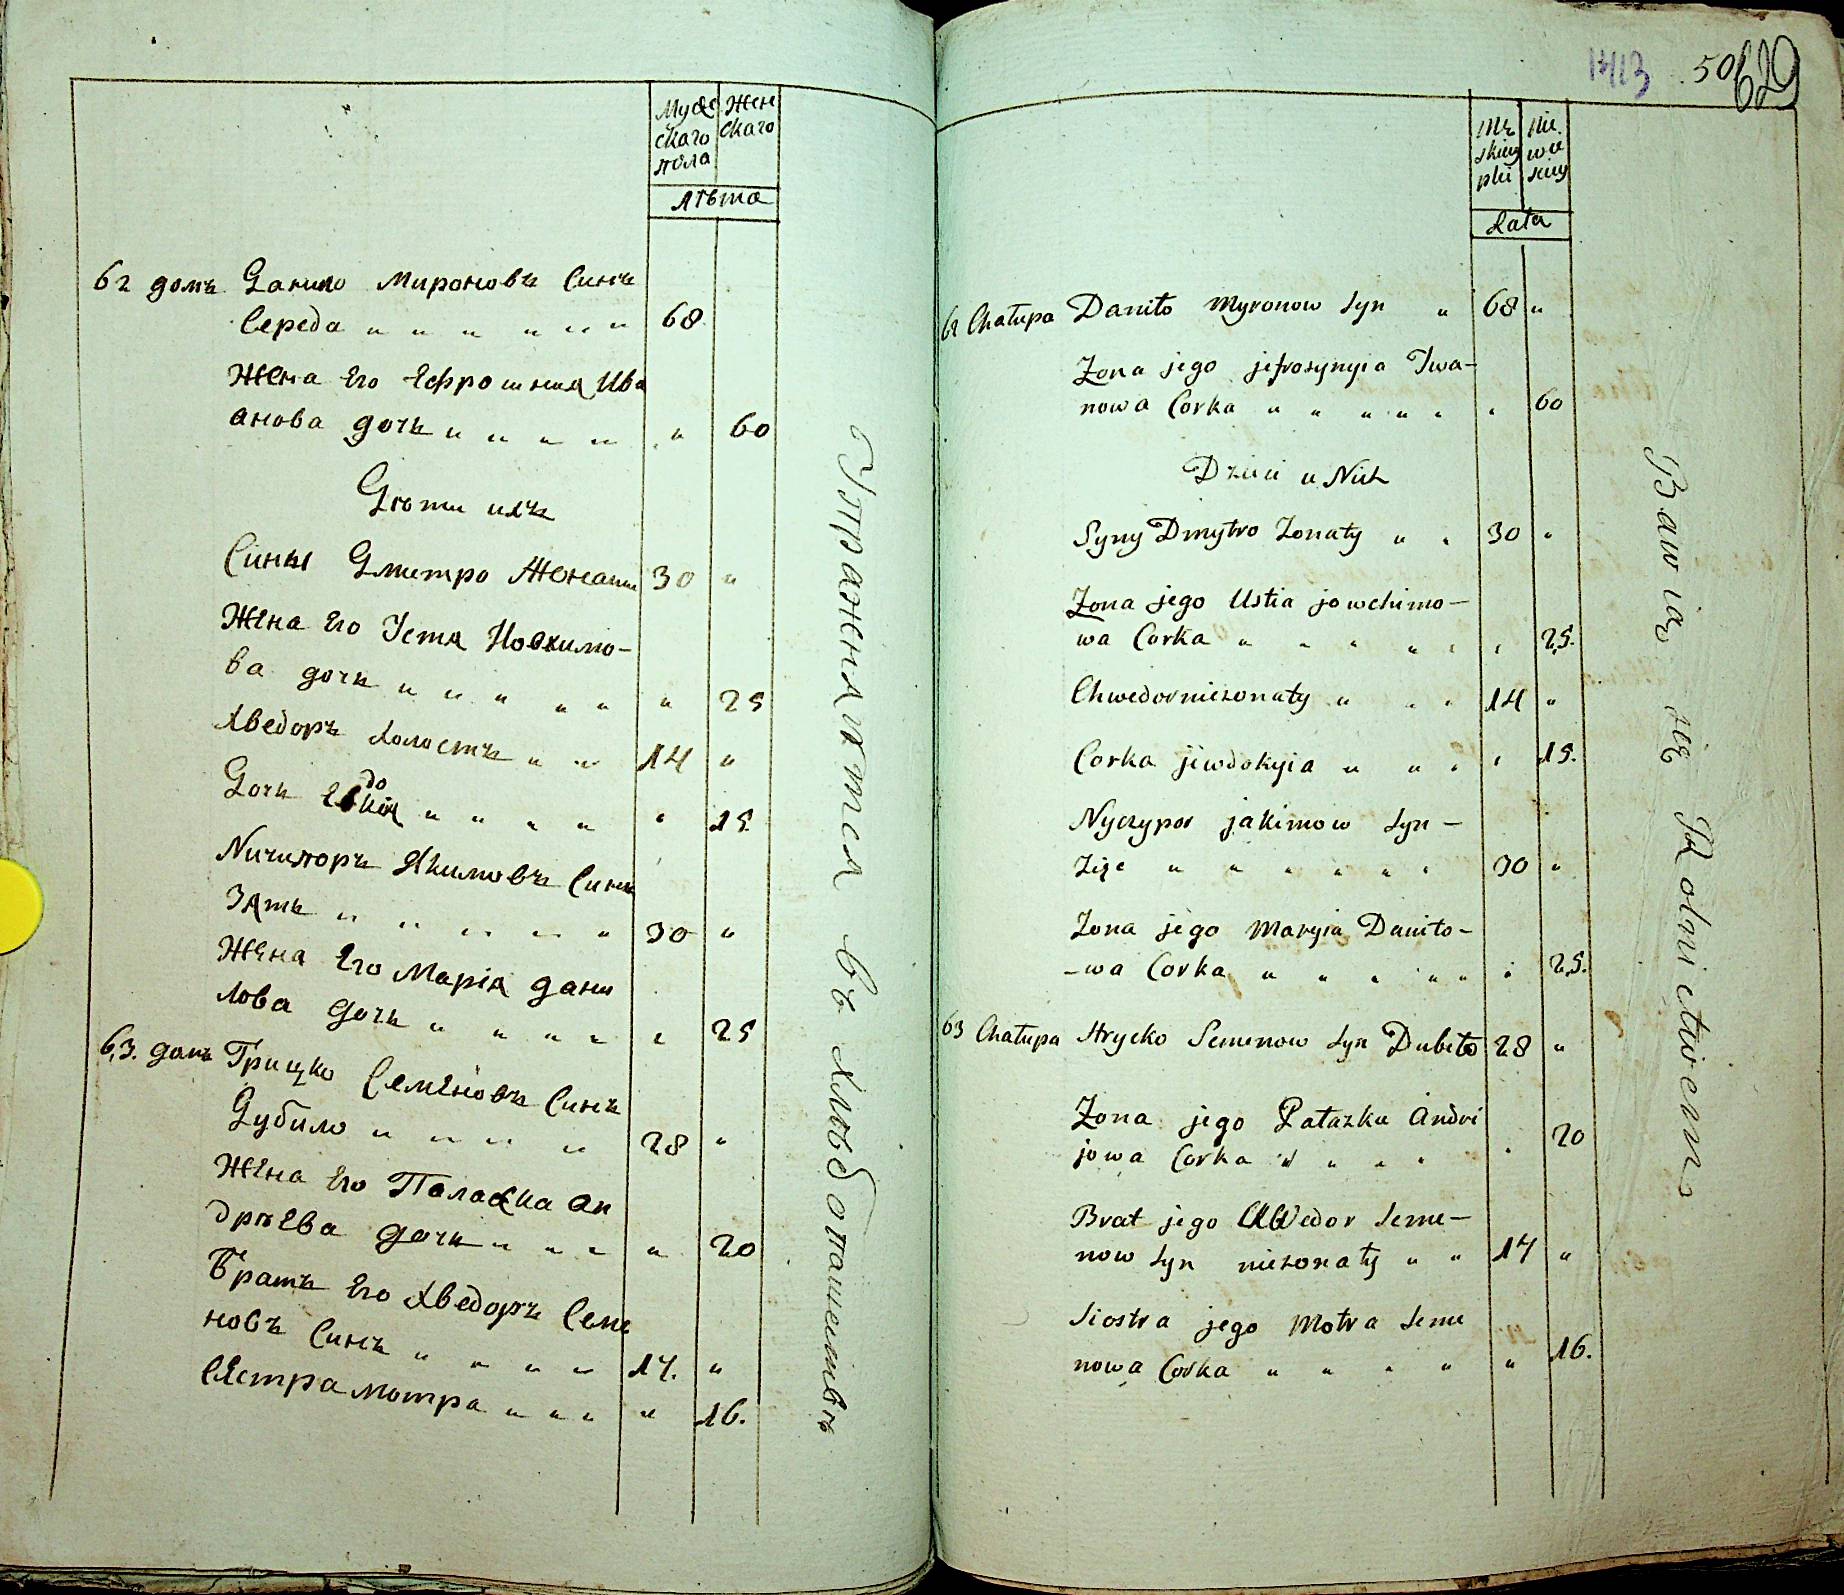 Муже Жен
скаго скаго
пола
лѣта
62 домъ Данило Мироновъ Синъ
Середа " " " " " " 68
Жена Его Ефросиния Ива
анова дочь " " " " " 60
Дѣти ихъ
Сины Дмитро Женатый 30 "
Жена Его Устя Иовхимо-
ва дочь " " " " " " 25
Хведоръ Холостъ " " 14 "
Дочь Евдокія " " " " " 15
Ничипоръ Якимовъ Синъ
Зять " " " " " 30 "
Жена Его Марія дани
лова дочь " " " " " 25
63. домъ Грицко Семеновъ Синъ
Дубило " " " " 28 "
Жена Его Палажка Ан
дрѣева дочь " " " " 20
Братъ Его Хведоръ Семе
новъ Синъ " " " " 17. "
Сестра Мотра " " " " 16.
Упражняются въ хлѣбопашествѣ
1413 50 629
Mę Nie.
skiey wie
płci skiey
Lata
62 Chałupa Daniło Myronow Syn " 68 "
Żona jego jefrosynyia Iwa-
nowa Corka " " " " " " 60
Dzieci u Nich
Syny Dmytro Żonaty " " 30 "
Żona jego Ustia jowchimo-
wa Corka " " " " " " 25.
Chwedor nieżonaty " " " 14 "
Corka jewdokyia " " " " 15.
Nyczypor jakimow Syn -
Zięc " " " " " " 30 "
Żona jego Maryia Daniło-
-wa Corka " " " " " " 25.
63 Chałupa Hrycko Semenow Syn Dubiło 28 "
Żona jego Pałażka Andri
jowa Corka " " " " " 20
Brat jego Chwedor Seme-
now Syn nieżonaty " " 17 "
Siostra jego Motra Seme
nowa Corka " " " " " 16.
Bawią się Rolnictwem